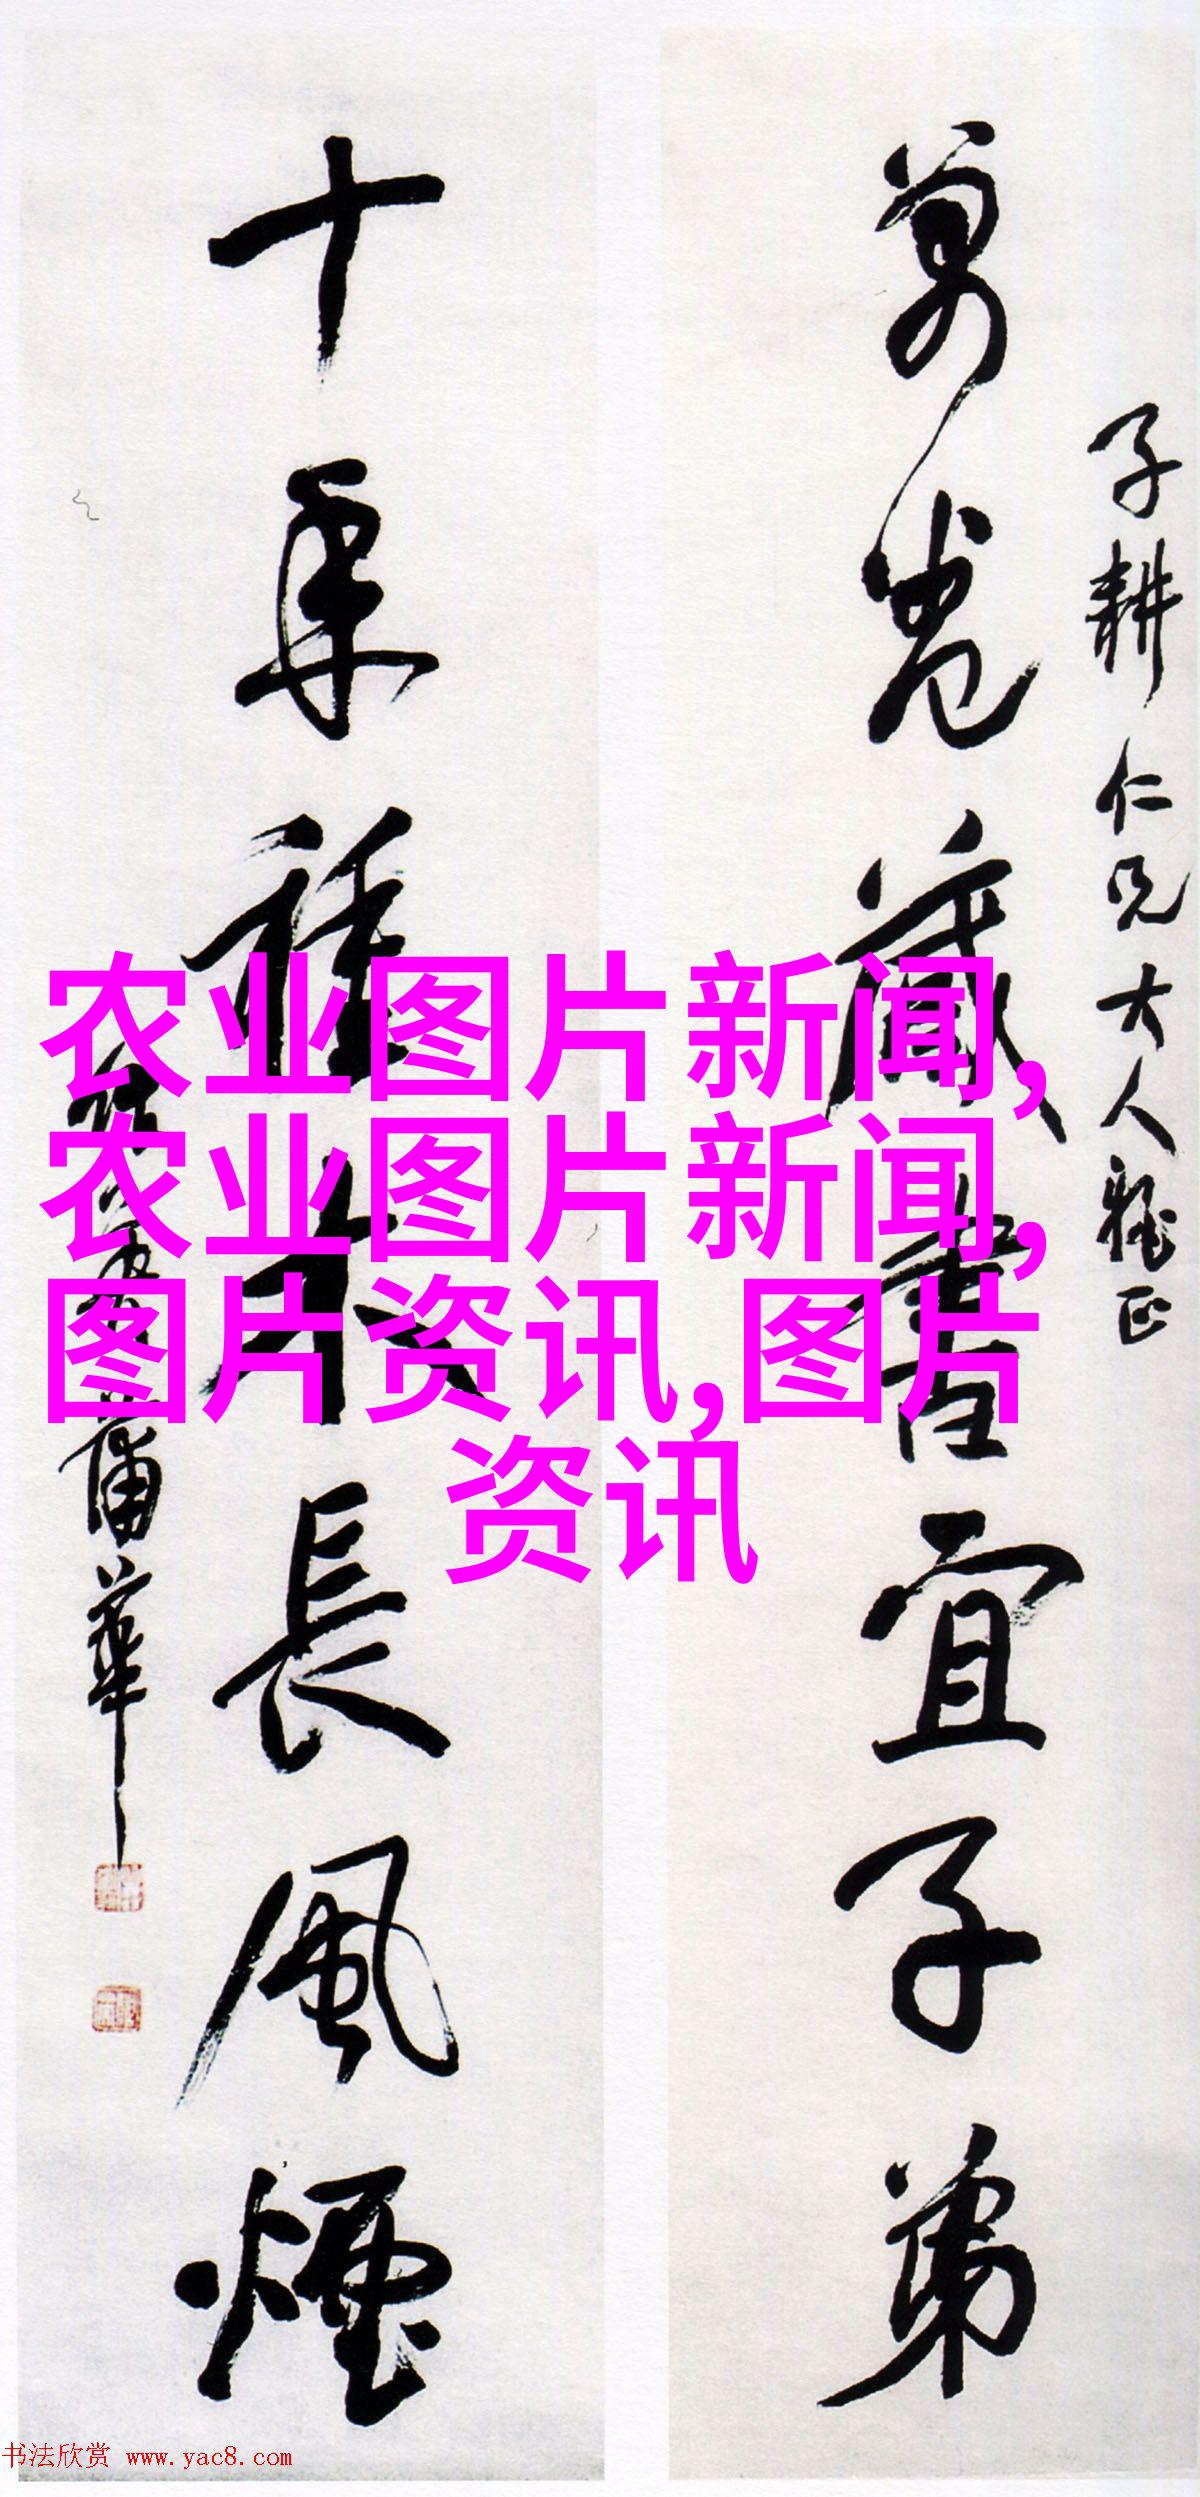 子耕仁兄大人雅正
萬卷藏書宜子弟
十年種木長風煙
蒲華
农业图片新闻,
农业图片新闻,
图片资讯,图片
资讯
书法欣赏 www.yac8.com